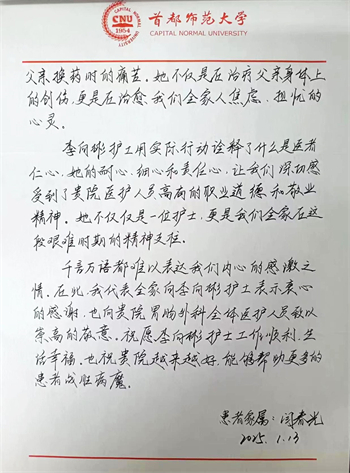 CAPITAL NORMAL
CNU
1954
UNIVERSITY
首都师范大学
CAPITAL NORMAL UNIVERSITY
父亲换药时的痛苦。她不仅是在治疗父亲身体上
的创伤,更是在治愈我们全家人焦虑、担忧的
心灵。
李向彬护士用实际行动诠释了什么是医者
仁心,她的耐心、细心和责任心,让我们深切感
受到了贵院医护人员高尚的职业道德和敬业
精神。她不仅仅是一位护士,更是我们全家在这
段艰难时期的精神支柱。
千言万语都难以表达我们内心的感激之
情。在此,我代表全家向李向彬护士表示衷心
的感谢,也向贵院胃肠外科全体医护人员致以
崇高的敬意。祝愿李向彬护士工作顺利,生
活幸福,也祝贵院越来越好,能够帮助更多的
患者战胜病魔。
患者家属:闫春光
2025.1.13